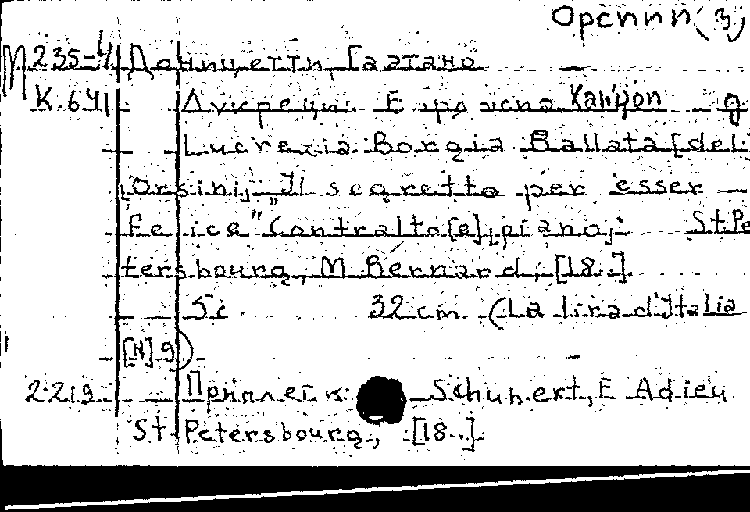 Орсини (3)
М 235-4 Доницетти, Гаэтано
К.641 Лукреция Канцон
Lucrezia Borgia Ballata [del
Orsini]: "Il segretto per esser
Felice" Contralto [e] piano; St Pe
tersbourg, M. Bernard, [18..]
5с 32 cm. (La lira d'Italia
[N] 9)
2-219 Приплет к: Schubert, F Adieu
St. Petersbourg, [18..]